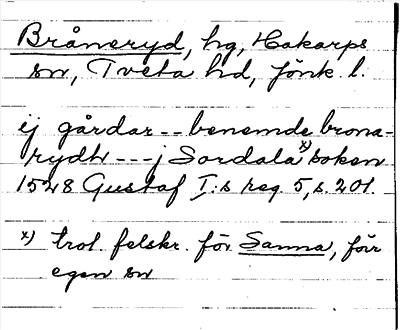 Bråneryd, hg, Hakarps
sn, Tveta hd, Jönk. l.
ij gårdar -- benemde brona-
rydh --- j Sordala x) boken
1528 Gustaf I:s reg. 5, s. 201.
x) trol. felskr. för Sanna, förr
egen sn